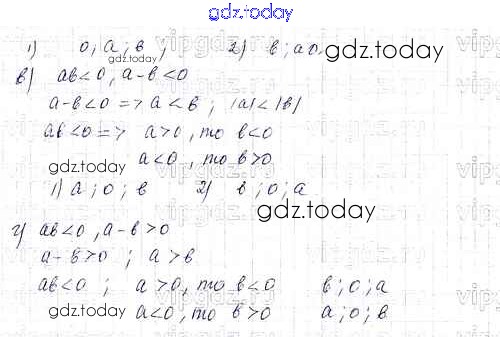 gdz.today
1) 0; а; в; 2) в; а 0. gdz.today
в) ав<0, а-в<0
gdz.today
а-в<0 => а<в; |а|<|в|
ав<0 => а>0, то в<0
gdz.today а<0, то в>0
1) а; 0; в 2) в; 0; а
gdz.today
г) ав<0, а-в>0
а-в>0; а>в
ав<0; а>0, то в<0 в; 0; а
gdz.today а<0, то в>0 а; 0; в